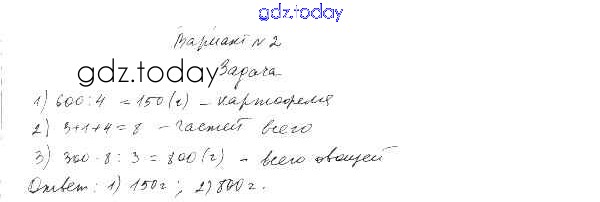 gdz.today
Вариант №2
gdz.today
Задача
1) 600:4 = 150(г) – картофеля
2) 3+1+4=8 – частей всего
3) 300·8:3=800(г) – всего овощей
Ответ: 1) 150г; 2) 800г.